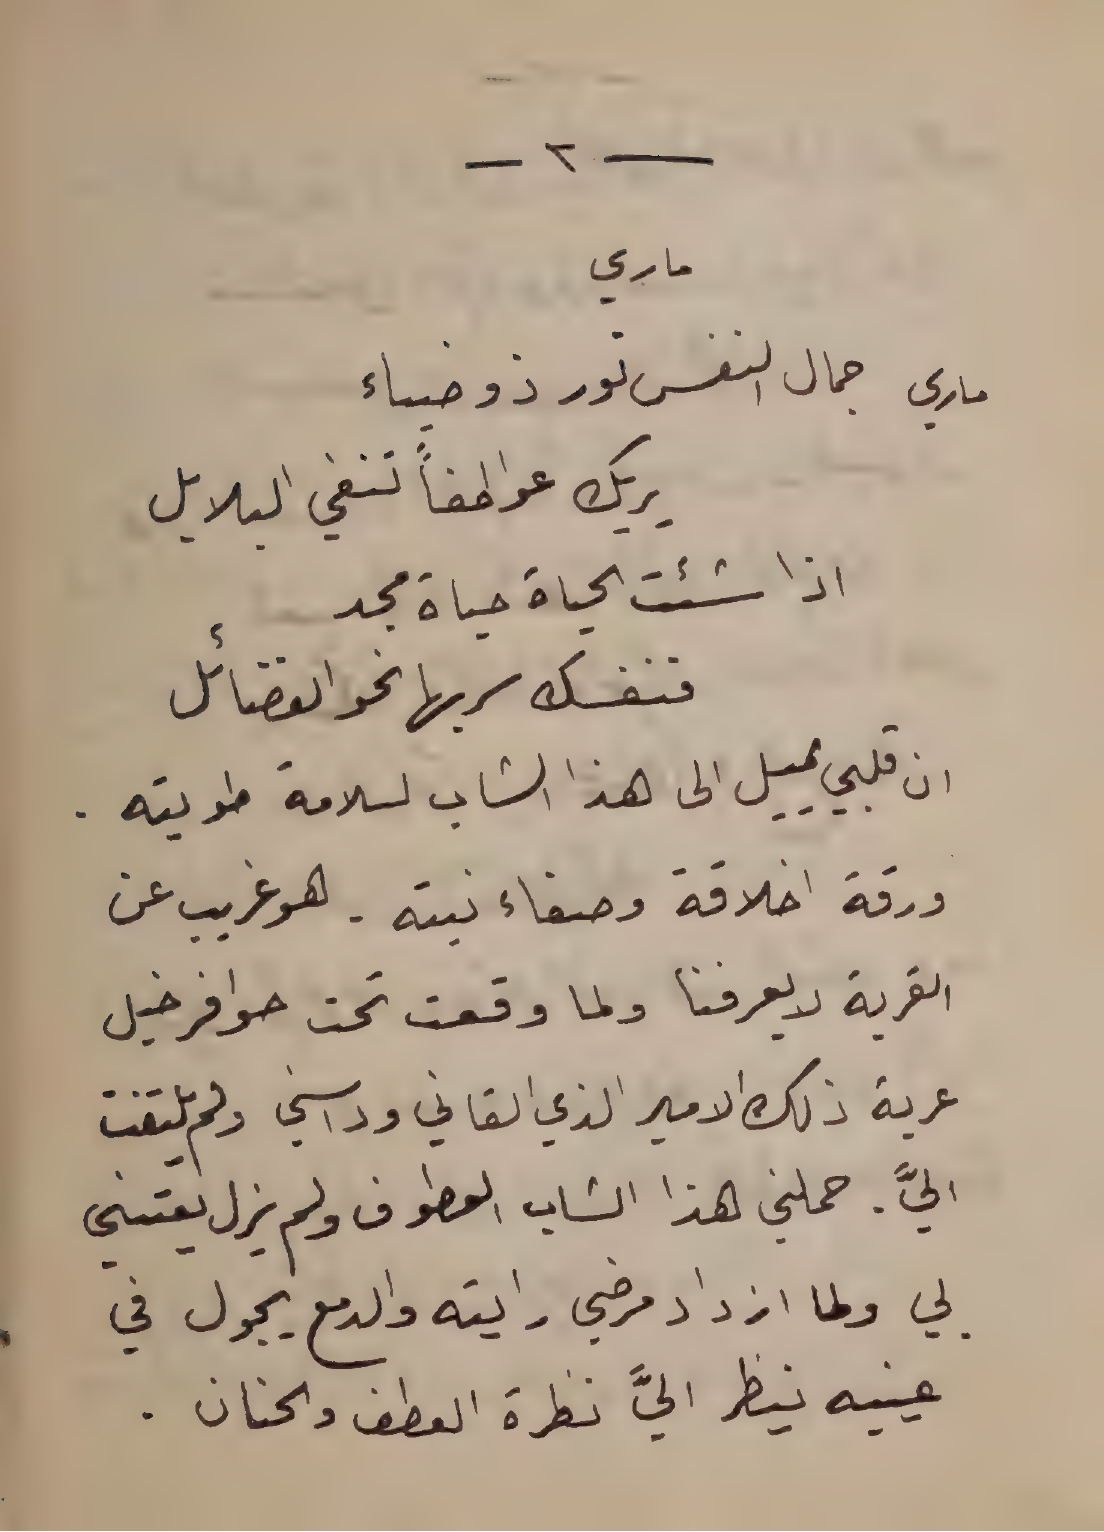 — ٢ —
ماري
ماري جمال النفس نور ذو ضياء
يريك عواطفاً تنفي البلابل
اذا شئت الحياة حياة مجد
فنفسك سر بها نحو الفضائل
ان قلبي يميل الى هذا الشاب لسلامة طويته .
ورقة اخلاقة وصفاء نيته . هو غريب عن
القرية لا يعرفنا ولما وقعت تحت حوافر خيل
عربة ذلك الامير الذي القاني وداسني ولم يلتفت
اليَّ . حملني هذا الشاب العطوف ولم يزل يعتني
بي ولما ازداد مرضي رايته والدمع يجول في
عينيه ينظر اليَّ نظرة العطف والحنان .